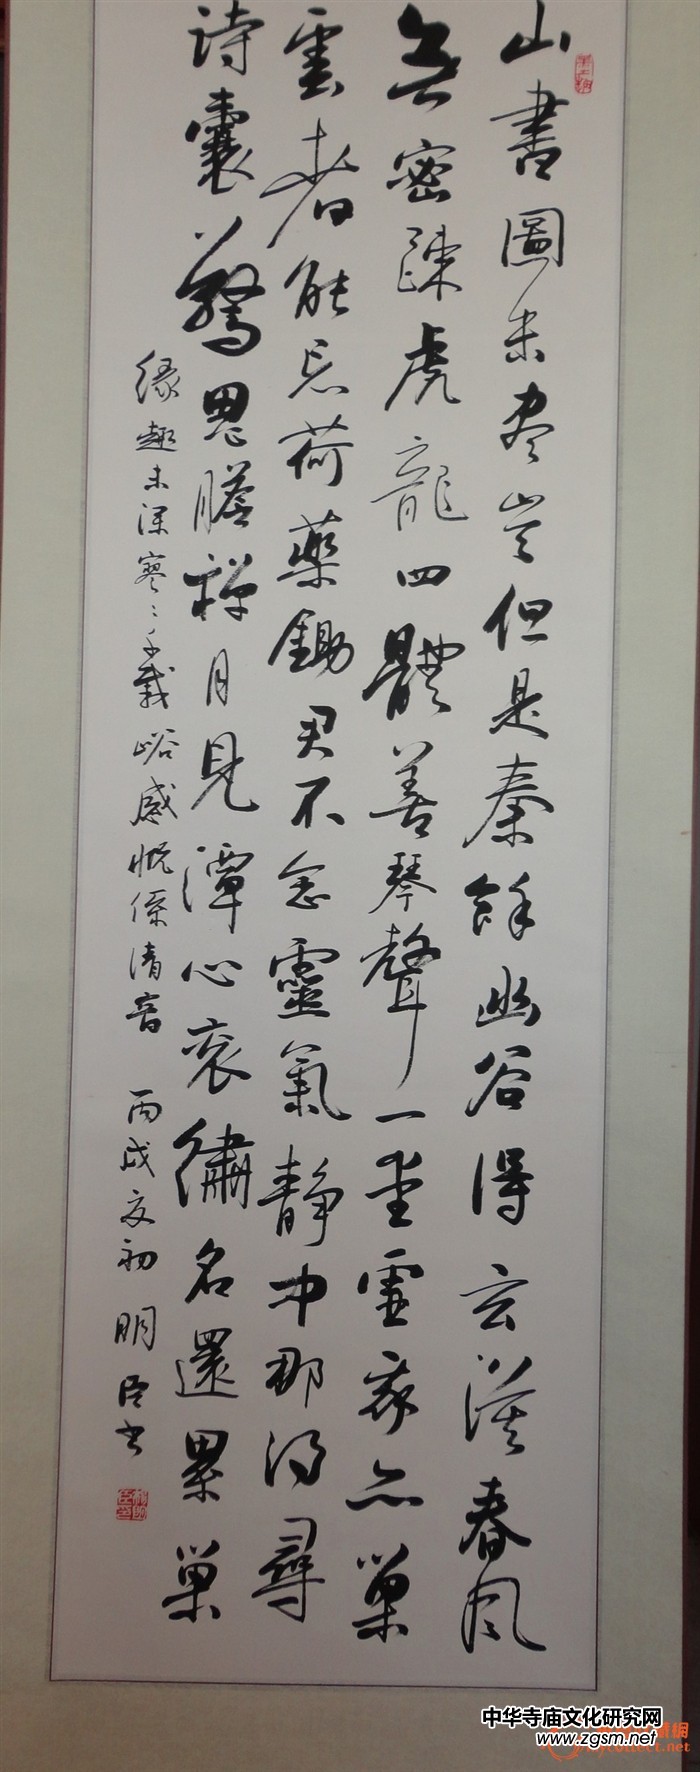 山書圖未盡豈但是秦餘幽谷得玄漠春風
無密疎虎龍四體善琴聲一坐虛亦巢
雲者能忘荷藥鋤君不念靈氣靜中那得尋
詩囊驚鬼膽禪月見潭心衮繡名還累巢
緣趣未深寥寥千載峪感慨係清音 丙戌夏初 明臣书
中华寺庙文化研究网
www.zgsm.net